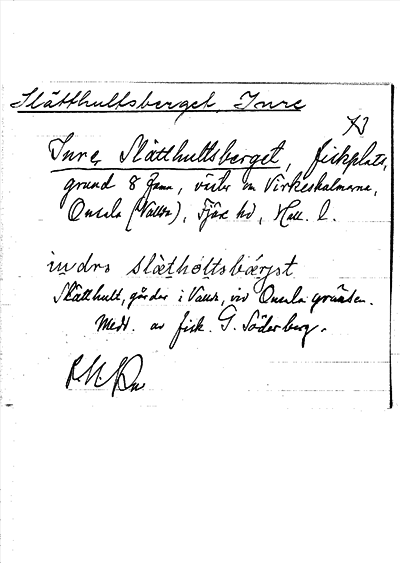 Slätthultsberget, Inre
Inre Slätthultsberget, fiskplats,
grund 8 famn, väster om Virkesholmarna,
Onsala (Vallda), Fjäre hd, Hall. l.
indrə slæthòltsbærjət
Slätthult, gårdar i Vallda, vid Onsala gränsen.
Medd. av fisk. G. Söderberg.